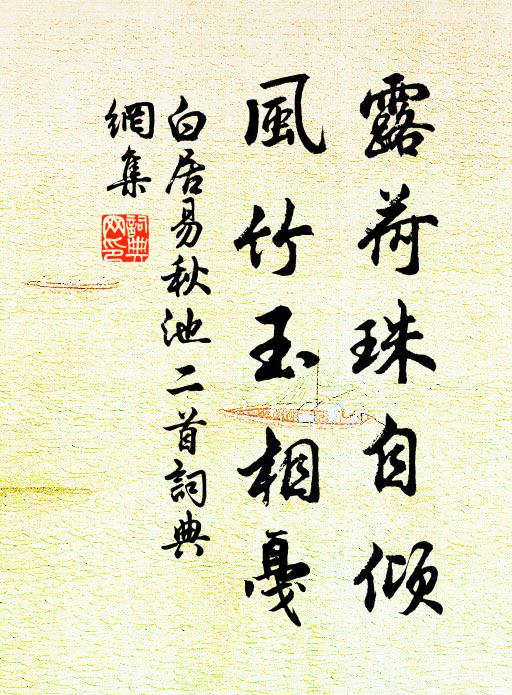 露荷珠自傾
風竹玉相戛
白居易秋池二首詞典
網集
詞典
网印